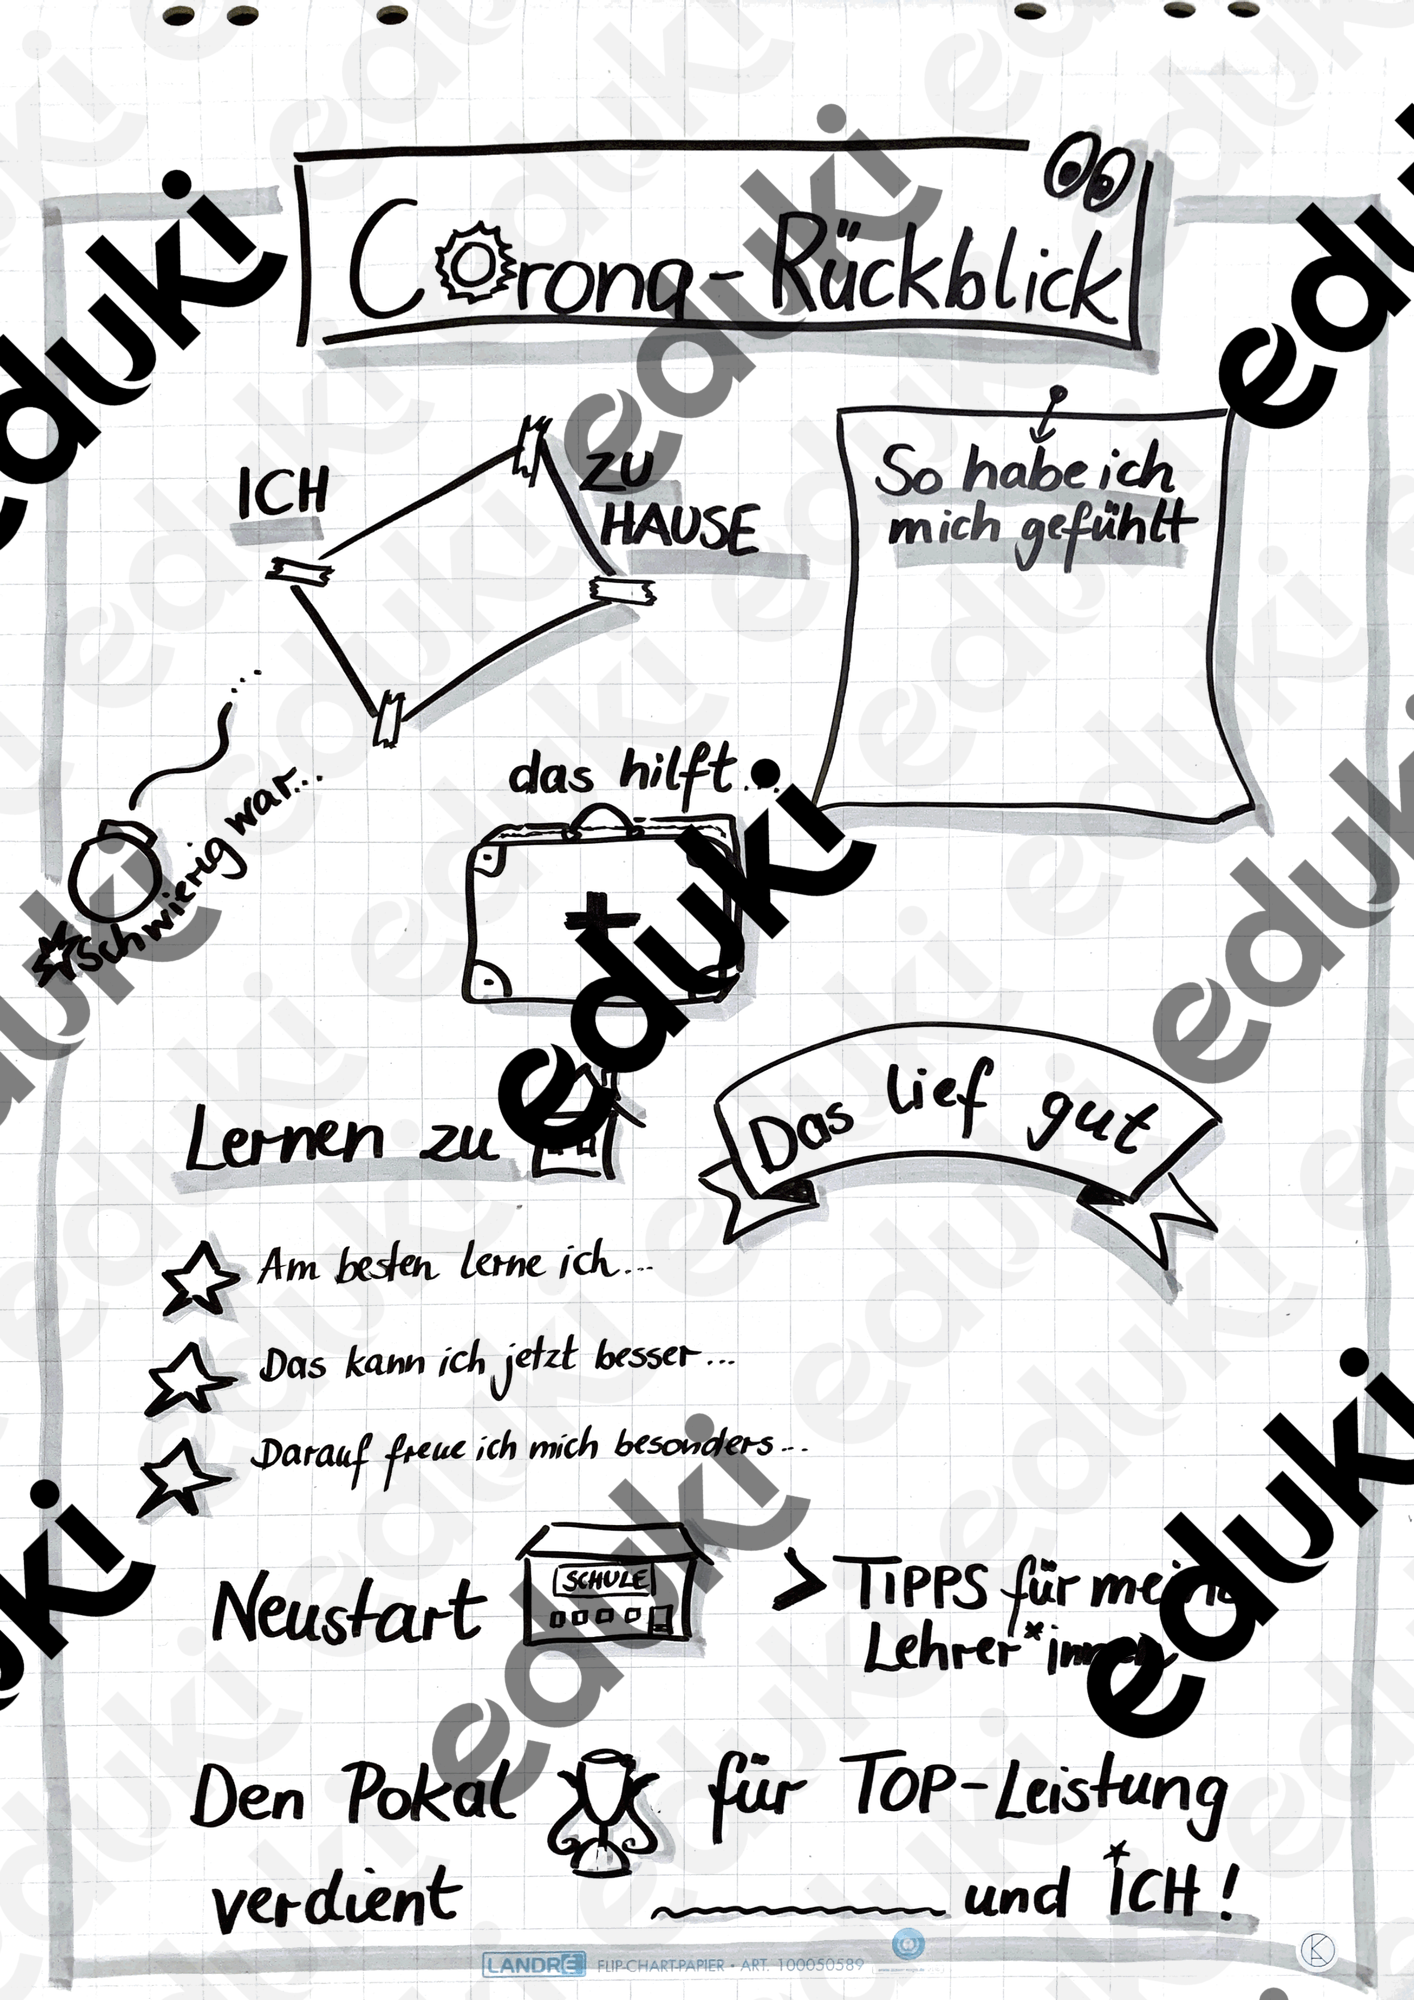 Corona-Rückblick
ICH
ZU
HAUSE
So habe ich
mich gefühlt
schwierig war...
das hilft...
Lernen zu
Das lief gut
Am besten lerne ich...
Das kann ich jetzt besser...
Darauf freue ich mich besonders...
Neustart
SCHULE
> TIPPS für meine
Lehrer*innen
Den Pokal für TOP-Leistung
verdient und ICH!
LANDRÉ FLIP-CHART-PAPIER • ART. 100050589
eduki
eduki
eduki
eduki
eduki
eduki
eduki
eduki
eduki